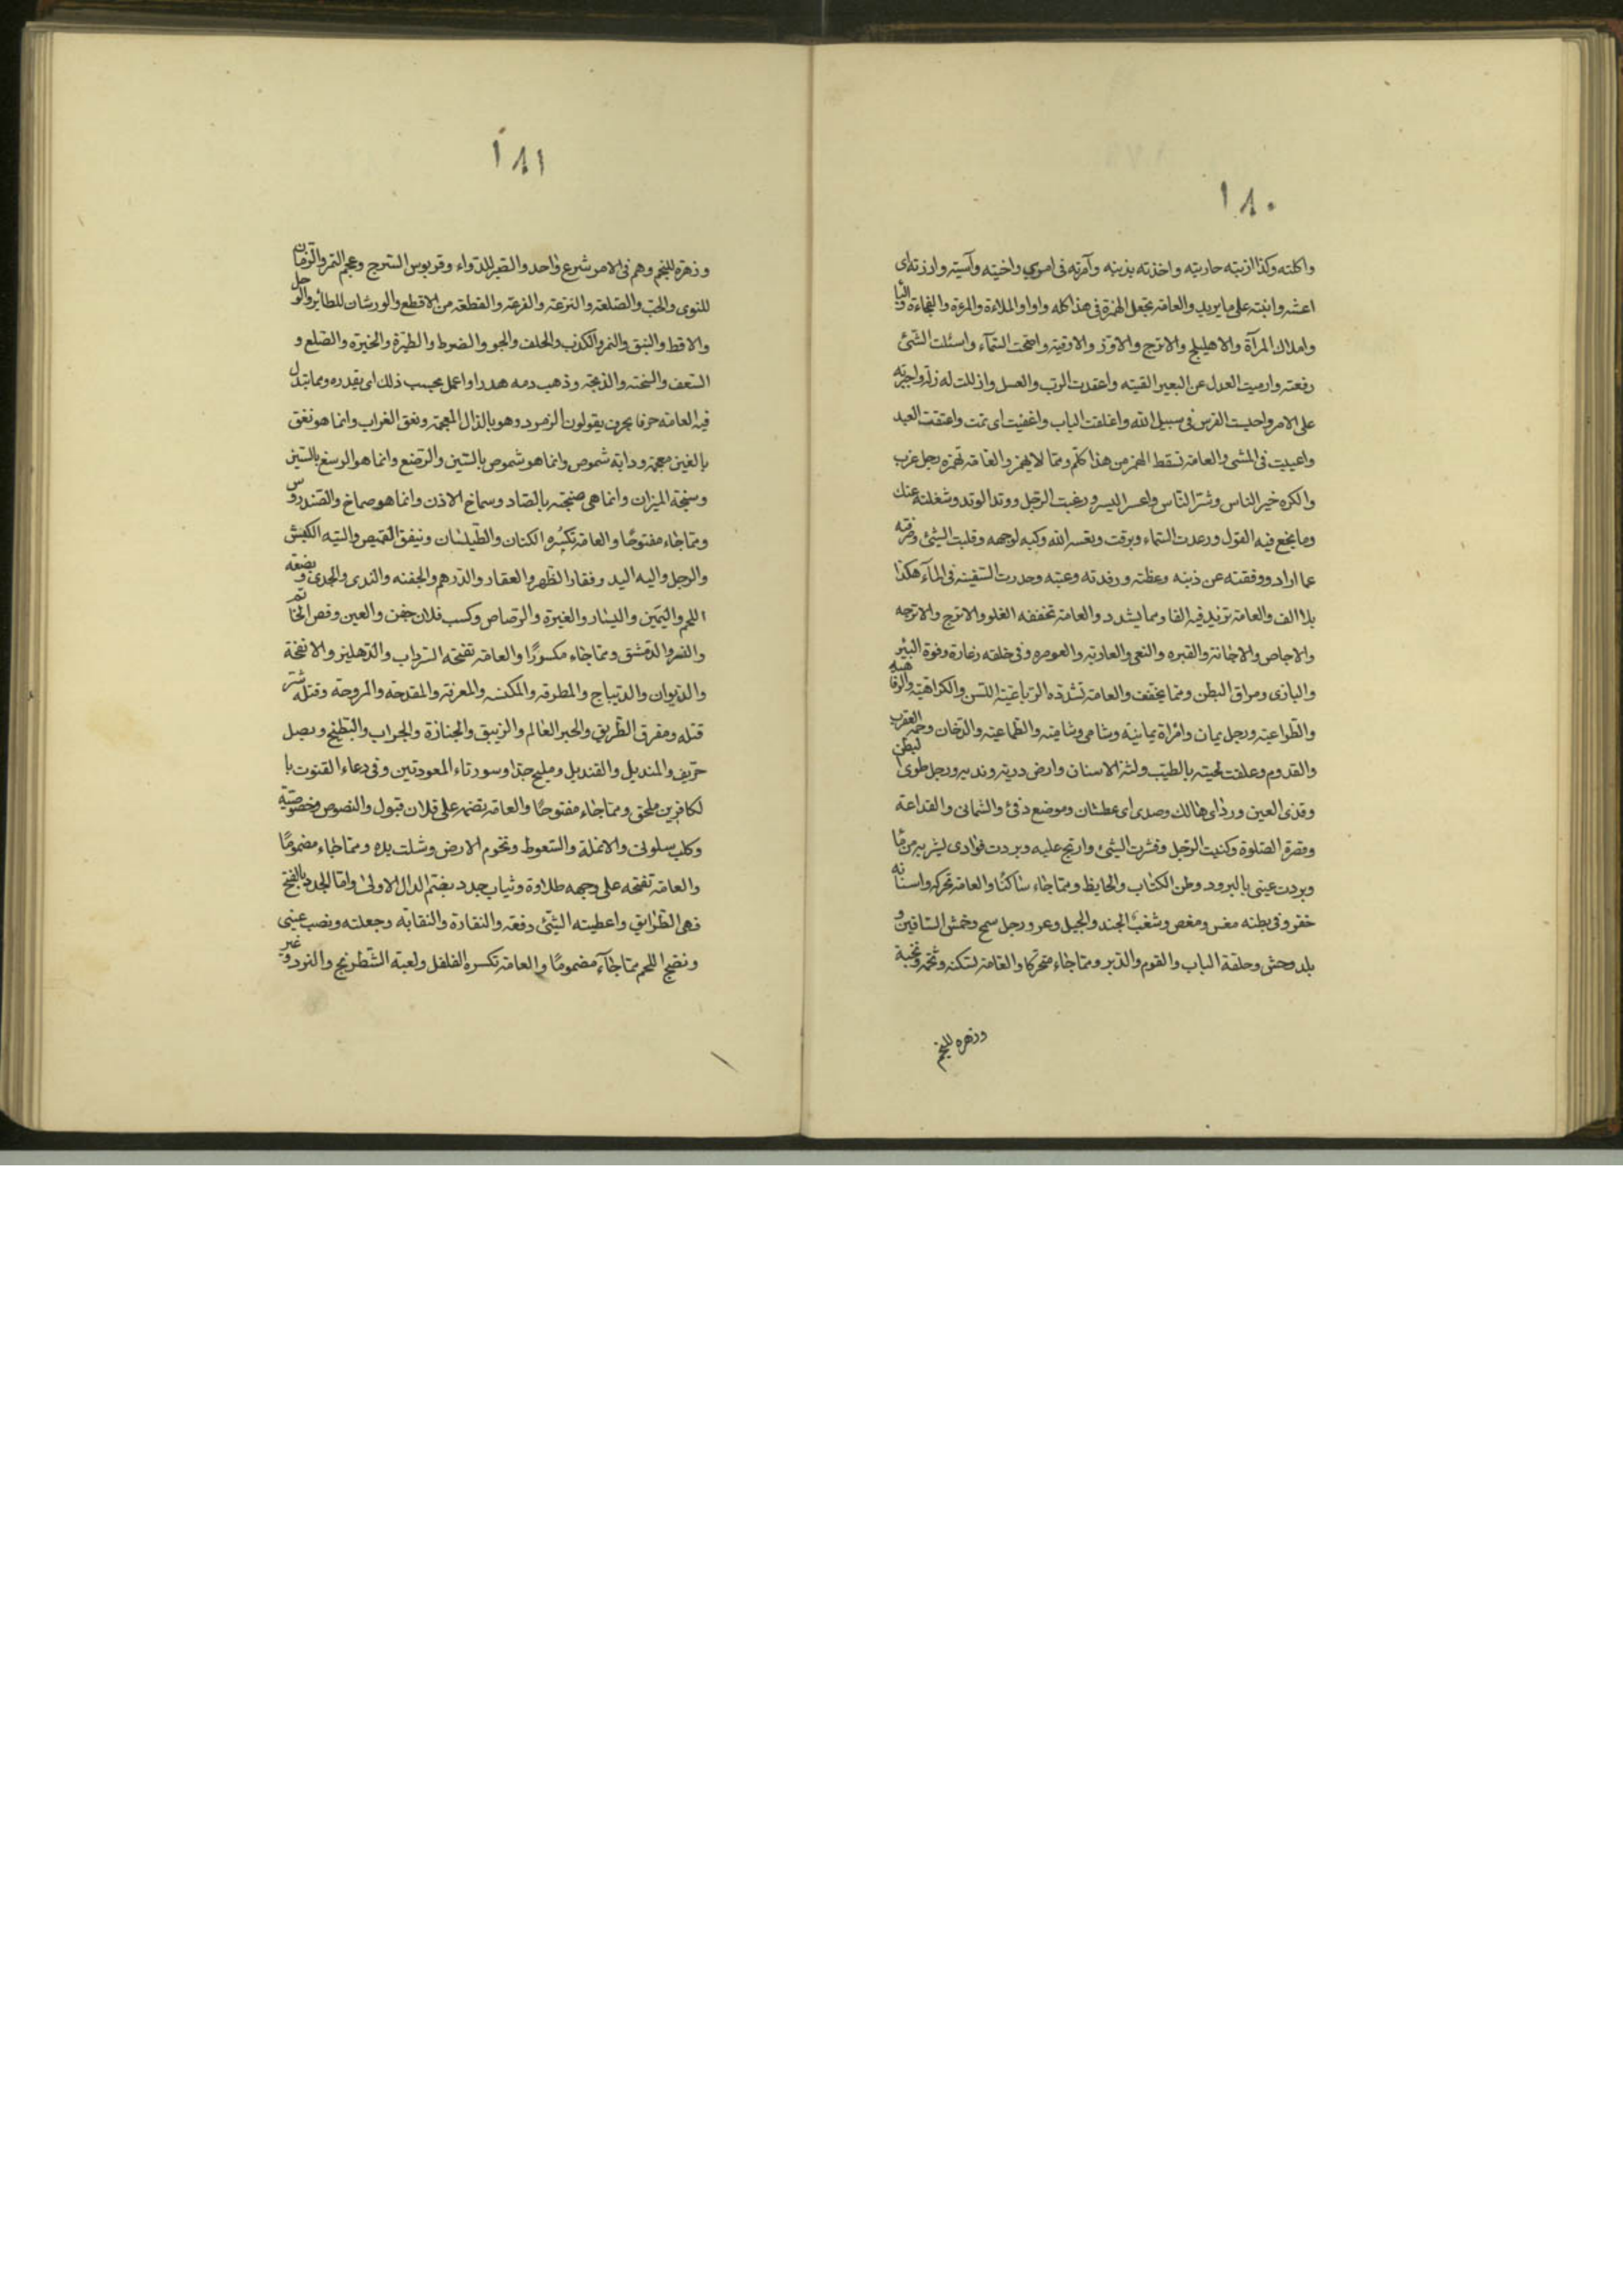 ١٨٠
واكلته وكذا ازنبته حاربته واخذته بذنبه وآمرته في اموري واخيته وآسيته وازرته اى
اعنته وانبته على ما يريد والعامه تجعل الهمزة في هذا كله واوا والملاءة والمرءة والفجاءة
واملاك المرآة والاهليلج والاترج والاوز والاوقية واضحت السماء واسئلت الشئ
رفعته وارميت العدل عن البعير القيته واعقدت الرب والعسل وازللت له زلة واجبرته
على الامر واحبست الفرس في سبيل الله واغلقت الباب واغفيت اى نمت واعتقت العبد
واعييت في المشى والعامه تسقط الهمز من هذا كلم ومما لا يهمز والعامه تهمزه رجل عزب
والكره خير الناس وشر الناس واعسر اليسر ورغبت الرجل ووتد الوتد وشغلته عنك
وما ينجع فيه القول ورعدت السماء وبرقت وتعسه الله وكبه لوجهه وقلبت الشئ وصرفته
عما اراد ووقفته عن ذنبه وغظته ورفدته وعبته وحدرت السفينه في الماء هكذا
بلا الف والعامه تزيد فيه الفا ومما يشدد والعامه تخففه الفلو والاترج والاترجه
والاجاص والاجانة والقبره والنعى والعاديه والعوصره وفي خلقه زعارة وفوة البئر
والبازى ومراق البطن ومما يخفف والعامه تشدده الرباعية للسن والكراهية والرفاهيه
والطواعيه ورجل يمان وامراة يمانيه وشامى وشاميه والطماعيه والدخان وحمه العقرب
والقدوم وغلفت لحيته بالطيب ولثة الاسنان وارض دويه ونديه ورجل طوى البطن
وقذى العين ورذ اى هالك وصدى اى عطشان وموضع دفئ والثمانى والقداعة
وقصرة الصلوة وكنيت الرجل وقشرت الشئ وارتج عليه وبردت فوادى بشربه من ما
وبردت عينى بالبرود وطن الكتاب والحايط ومما جاء ساكنا والعامه تحركه واسنانه
حفر وفي بطنه مغس ومغص وشغب الجند والجبل وعر ورجل سمح وحمش الساقين و
بلد وحش وحلقة الباب والقوم والدبر ومما جاء متحركا والعامه تسكنه وتخمه ونخبة
وزهره للنجم
١٨١
وزهره للنجم وهم في الامر شرع واحد والصبر للدواء وقربوس السرج وعجم التمر والرمان
للنوى والحب والصلعه والنزعه والفرعه والقطعه من الاقطع والورشان للطائر والوحل
والاقط والنبق والنمر والكذب والحلف والجو والضرط والطيرة والخيرة والضلع و
السعف والسخنه والذبحه وذهب دمه هدرا واعمل بحسب ذلك اى بقدره ومما تبدل
فيه العامه حرفا بحرف يقولون الزمرد وهو بالذال المعجمه ونعق الغراب وانما هو نغق
بالغين معجمه ودابه شموص وانما هو شموس بالسين والرصغ وانما هو الرسغ بالسين
وسنجة الميزان وانما هى صنجه بالصاد وسماخ الاذن وانما هو صماخ والصندروس
ومما جاء مفتوحا والعامه تكسره الكتان والطيلسان ونيفق القميص والية الكبش
والرجل والية اليد وفقار الظهر والعقار والدرهم والجفنه والثدى والجدى وبضعه
اللحم واليمين واليسار والغيرة والرصاص وكسب فلان جفن والعين وفص الخاتم
والنسر والدمشق ومما جاء مكسورا والعامه تفتحه السرداب والدهليز والانفخة
والديوان والديباج والمطرقه والمكنسه والمغرفه والمقدحه والمروحه وقتله شر
قتله ومفرق الطريق والحبر العالم والزيبق والجنازة والجراب والبطيخ وبصل
حريف والمنديل والقنديل ومليح جدا وسورتاء المعوذتين وفي دعاء القنوت با
لكافرين ملحق ومما جاء مفتوحا والعامه يضمه على فلان قبول والنصوص وخصوصية
وكلب سلوقى والانملة والسعوط وتخوم الارض وشلت يده ومما جاء مضموما
والعامه تفتحه على وجهه طلاوة وثياب جدد بضم الدال الاولى واما الجدد بالفتح
فهى الطرايق واعطيته الشئ دفعه والنقاوة والنقايه وجعلته ونصب عينى
ونضج اللحم مما جآء مضموما والعامه تكسره الفلفل ولعبة الشطرنج والنرد وغير